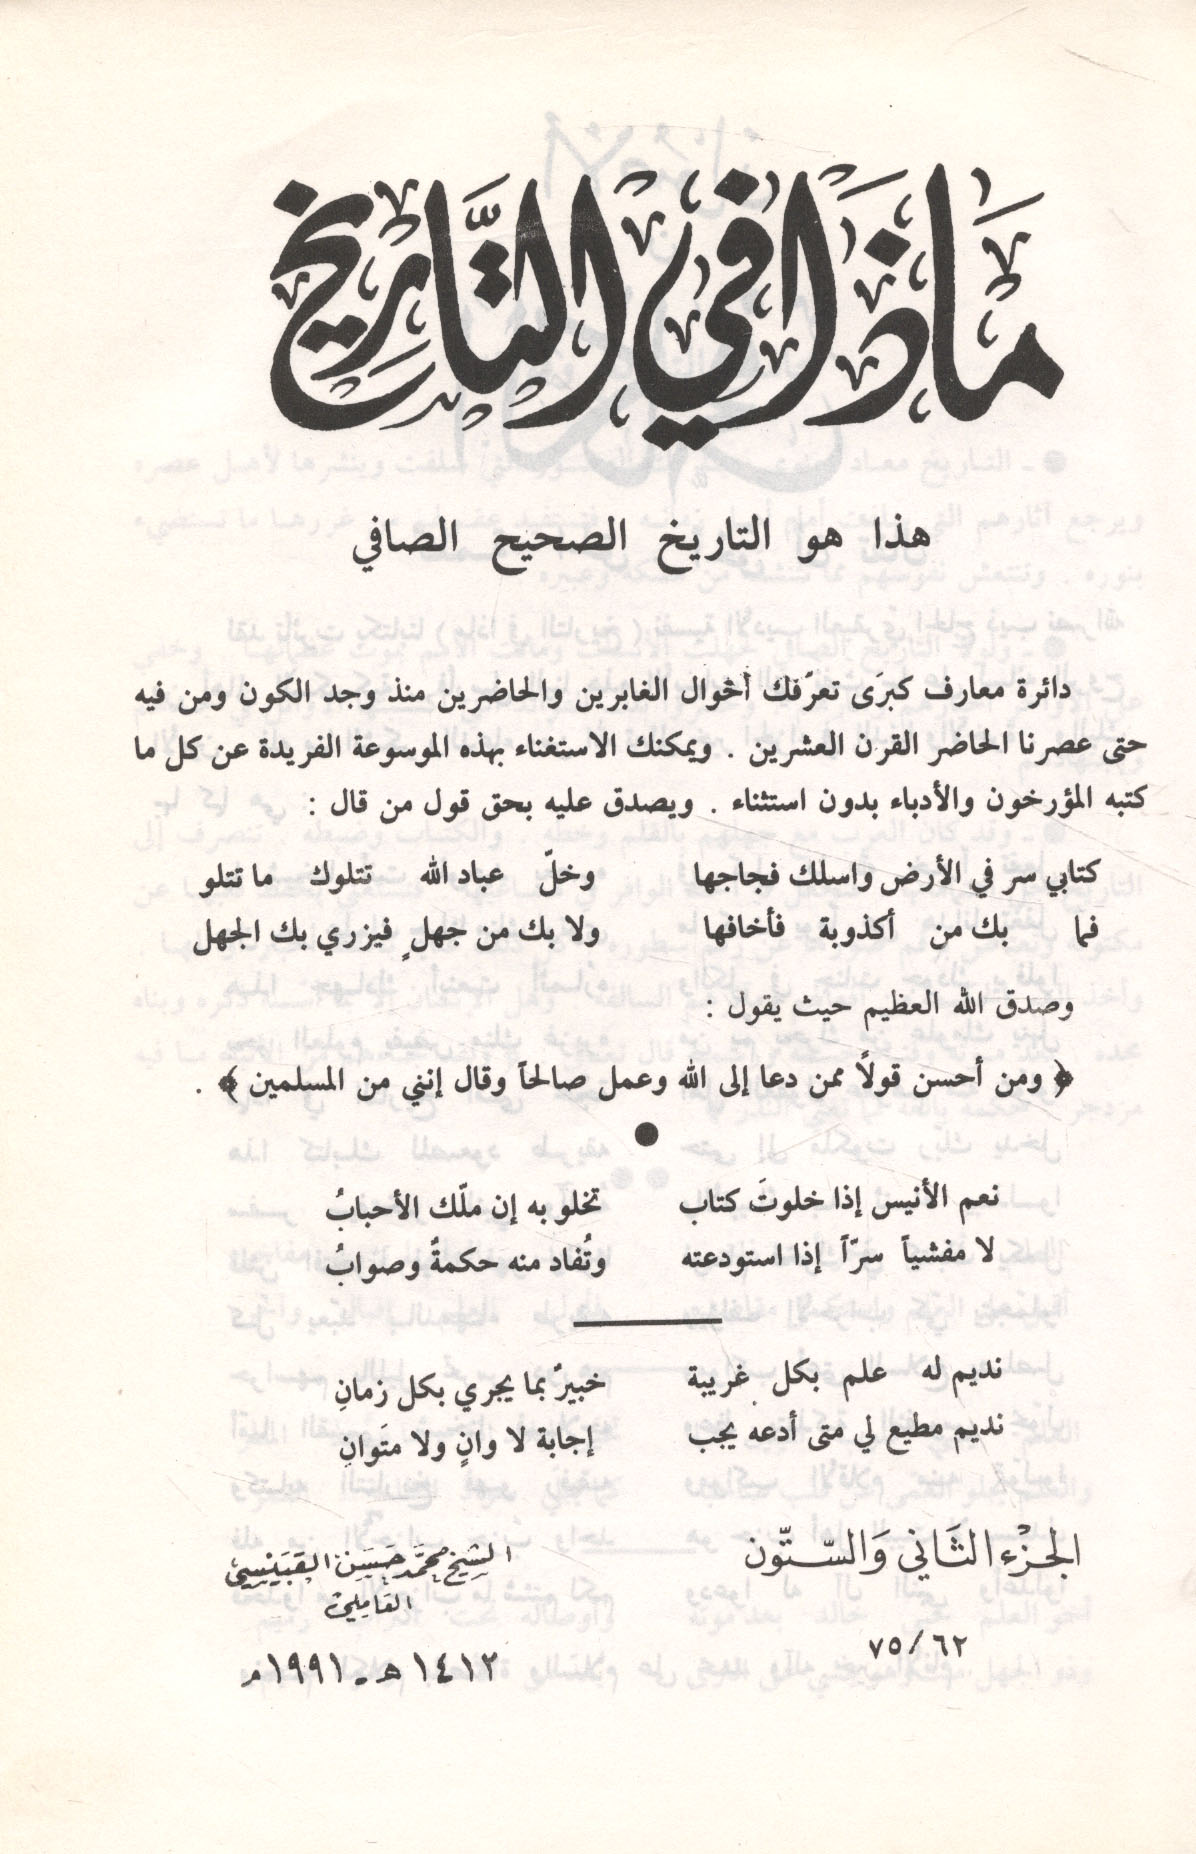 ماذا في التاريخ
هذا هو التاريخ الصحيح الصافي
دائرة معارف كبرى تعرّفك أحوال الغابرين والحاضرين منذ وجد الكون ومن فيه
حتى عصرنا الحاضر القرن العشرين . ويمكنك الاستغناء بهذه الموسوعة الفريدة عن كل ما
كتبه المؤرخون والأدباء بدون استثناء . ويصدق عليه بحق قول من قال :
كتابي سر في الأرض واسلك فجاجها وخلّ عباد الله تتلوك ما تتلو
فما بك من أكذوبة فأخافها ولا بك من جهلٍ فيزري بك الجهل
وصدق الله العظيم حيث يقول :
﴿ ومن أحسن قولاً ممن دعا إلى الله وعمل صالحاً وقال إنني من المسلمين ﴾ .
●
نعم الأنيس إذا خلوتَ كتاب تخلو به إن ملّك الأحبابُ
لا مفشياً سرّاً إذا استودعته وتُفاد منه حكمةٌ وصوابُ
نديم له علم بكل غريبة خبيرٌ بما يجري بكل زمانِ
نديم مطيع لي متى أدعه يجب إجابة لا وانٍ ولا متوانِ
الجزء الثاني والستّون الشيخ محمد حسن القبيسي
العاملي
٧٥/٦٢ ١٤١٢ هـ - ١٩٩١ م